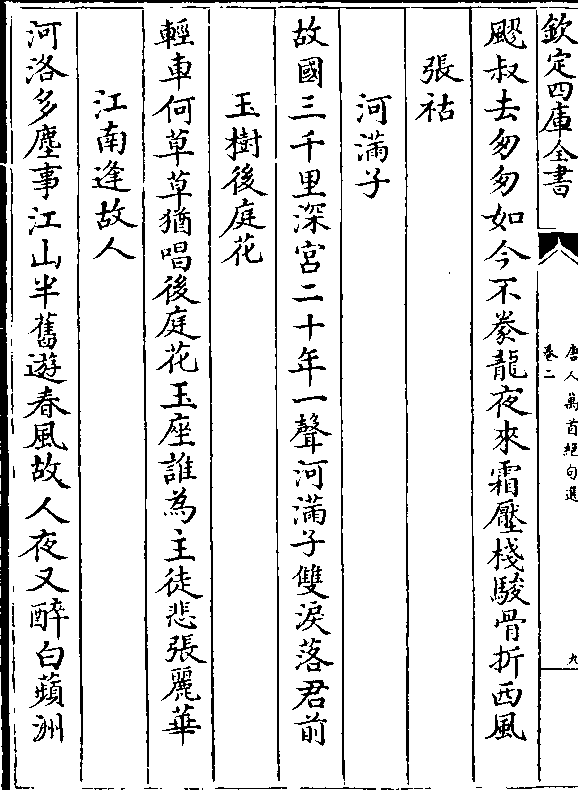 欽定四庫全書
唐人萬首絕句選
卷二
九
飂叔去匆匆如今不豢龍夜來霜壓棧駿骨折西風
張祜
河滿子
故國三千里深宮二十年一聲河滿子雙淚落君前
玉樹後庭花
輕車何草草猶唱後庭花玉座誰為主徒悲張麗華
江南逢故人
河洛多塵事江山半舊遊春風故人夜又醉白蘋洲